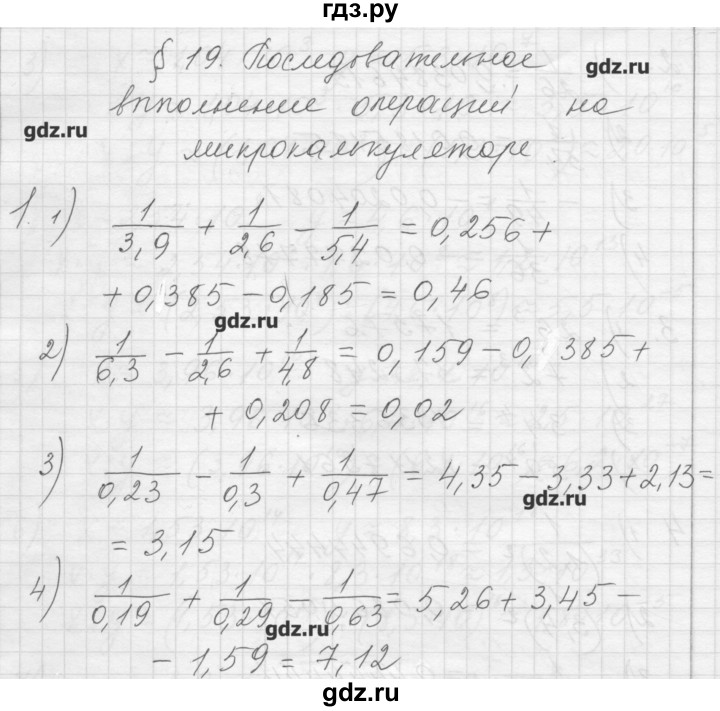 гдз.ру
§ 19. Последовательное
gdz.ru
впполнение операций на
gdz.ru
микрокалькуляторе.
1. 1) 1/3,9 + 1/2,6 − 1/5,4 = 0,256 +
+ 0,385 − 0,185 = 0,46
gdz.ru
2) 1/6,3 − 1/2,6 + 1/4,8 = 0,159 − 0,385 +
+ 0,208 = 0,02
3) 1/0,23 − 1/0,3 + 1/0,47 = 4,35 − 3,33 + 2,13 =
gdz.ru
= 3,15
4) 1/0,19 + 1/0,29 − 1/0,63 = 5,26 + 3,45 −
gdz.ru
− 1,59 = 7,12
gdz.ru